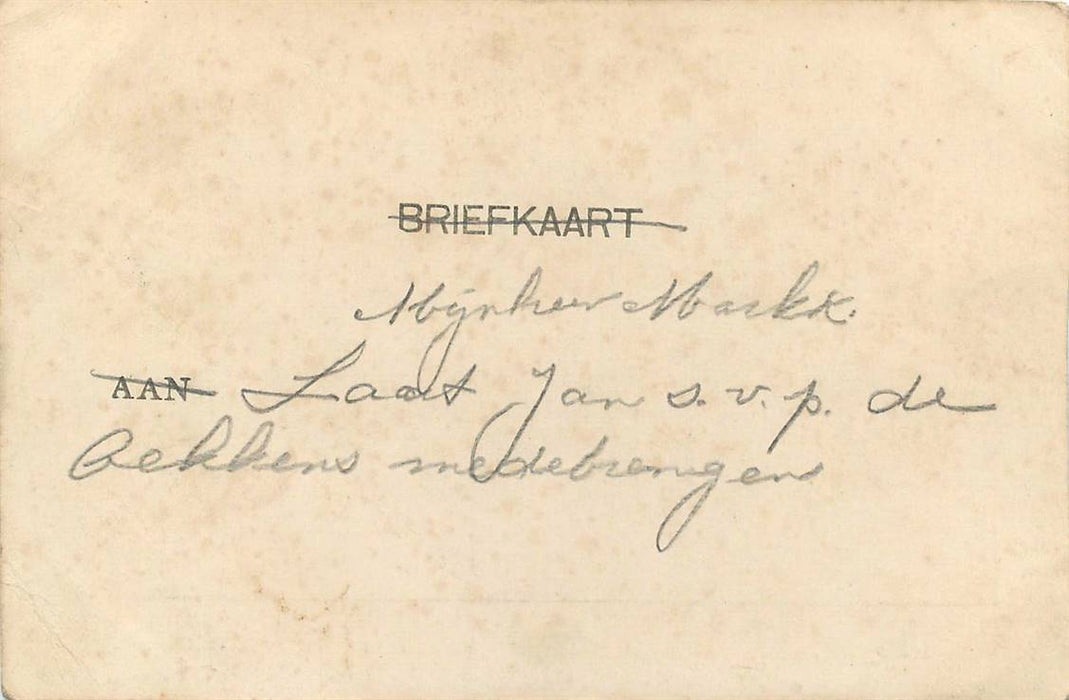 BRIEFKAART
Mijnheer Markx.
AAN Laat Jan s.v.p. de
bekkens medebrengen